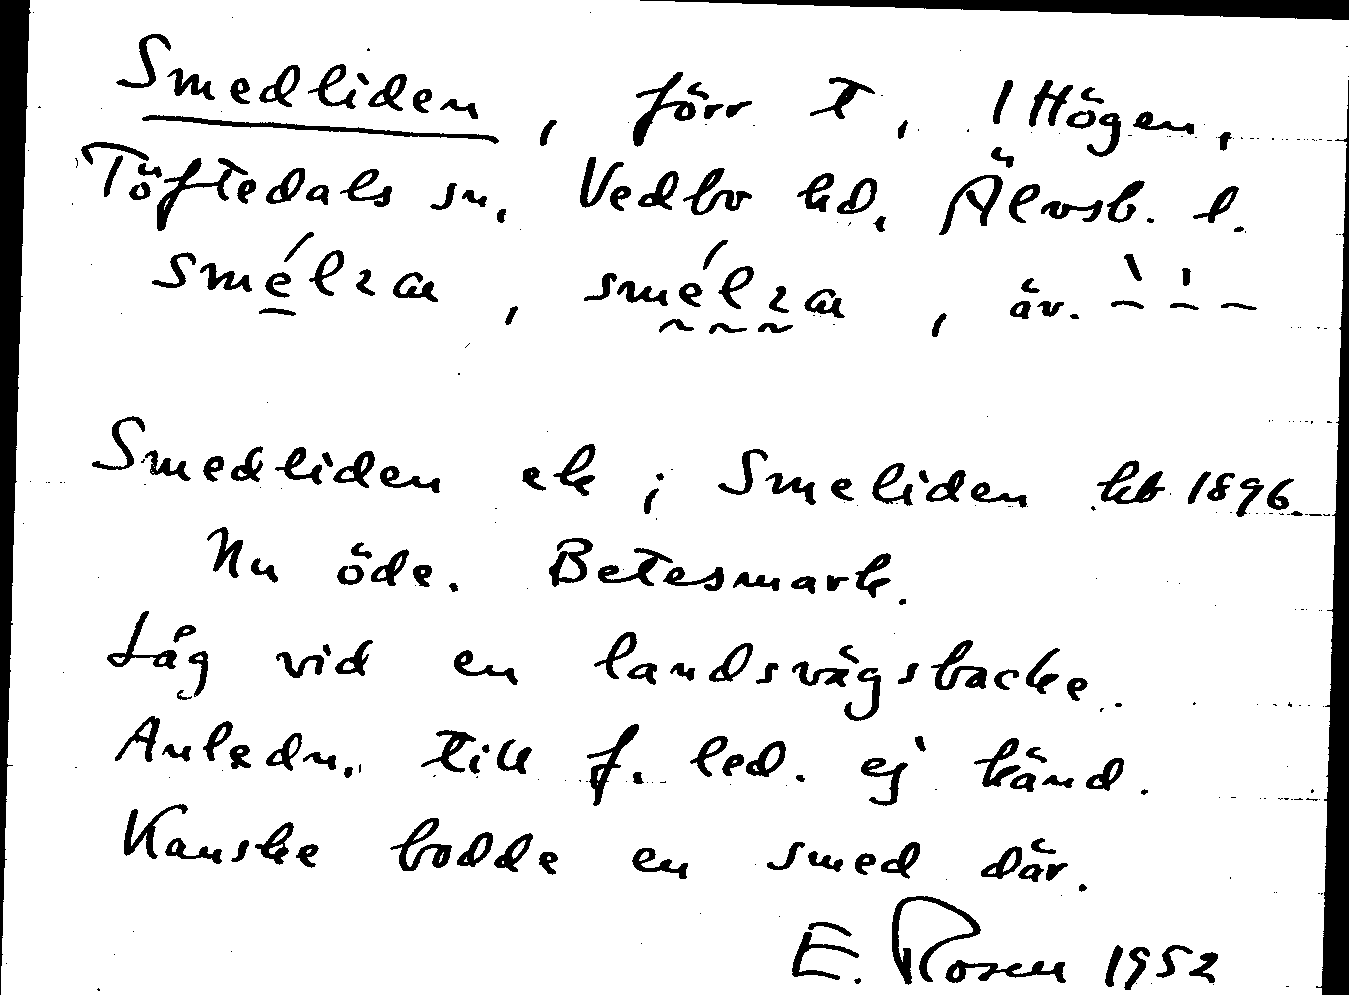 Smedliden, förr t, 1 Högen,
Töftedals sn, Vedbo hd, Älvsb. l.
av.
Smedliden ek; Smeliden kb 1896.
Nu öde. Betesmark.
Låg vid en landsvägsbacke.
Anledn. till f. led. ej känd.
Kanske bodde en smed där.
E. Rosen 1952